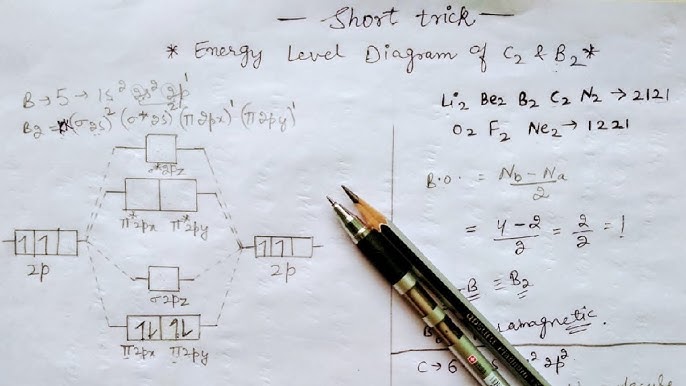 — Short trick —
* Energy Level Diagram of C₂ & B₂ *
B → 5 → 1s² 2s² 2p¹
B₂ = (σ2s)² (σ*2s)² (π2px)¹ (π2py)¹
*2pz
π*2px π*2py
1 1
2p
1 1
2p
σ2pz
1l 1l
π2px π2py
Li₂ Be₂ B₂ C₂ N₂ → 2121
O₂ F₂ Ne₂ → 1221
B.O. = Nb – Na / 2
= 4 – 2 / 2 = 2 / 2 = 1
B ≡ B₂
amagnetic.
C → 6 ² 2p²